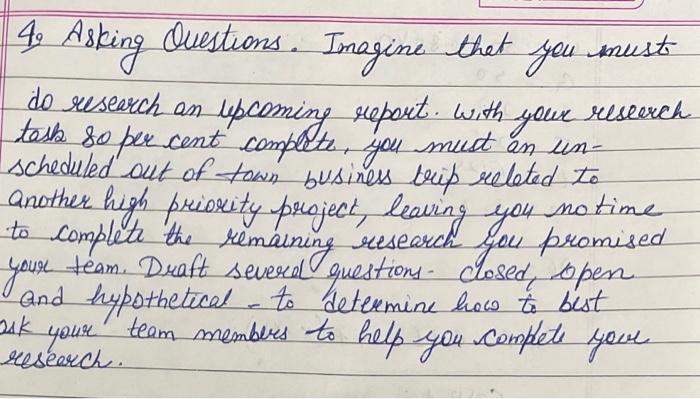 4. Asking Questions. Imagine that you must
do research an upcoming report. With your research
task 80 per cent complete, you must an un-
scheduled out of town business trip related to
another high priority project, leaving you no time
to complete the remaining research you promised
your team. Draft several questions - closed, open
and hypothetical - to determine how to best
ask your team members to help you complete your
research.